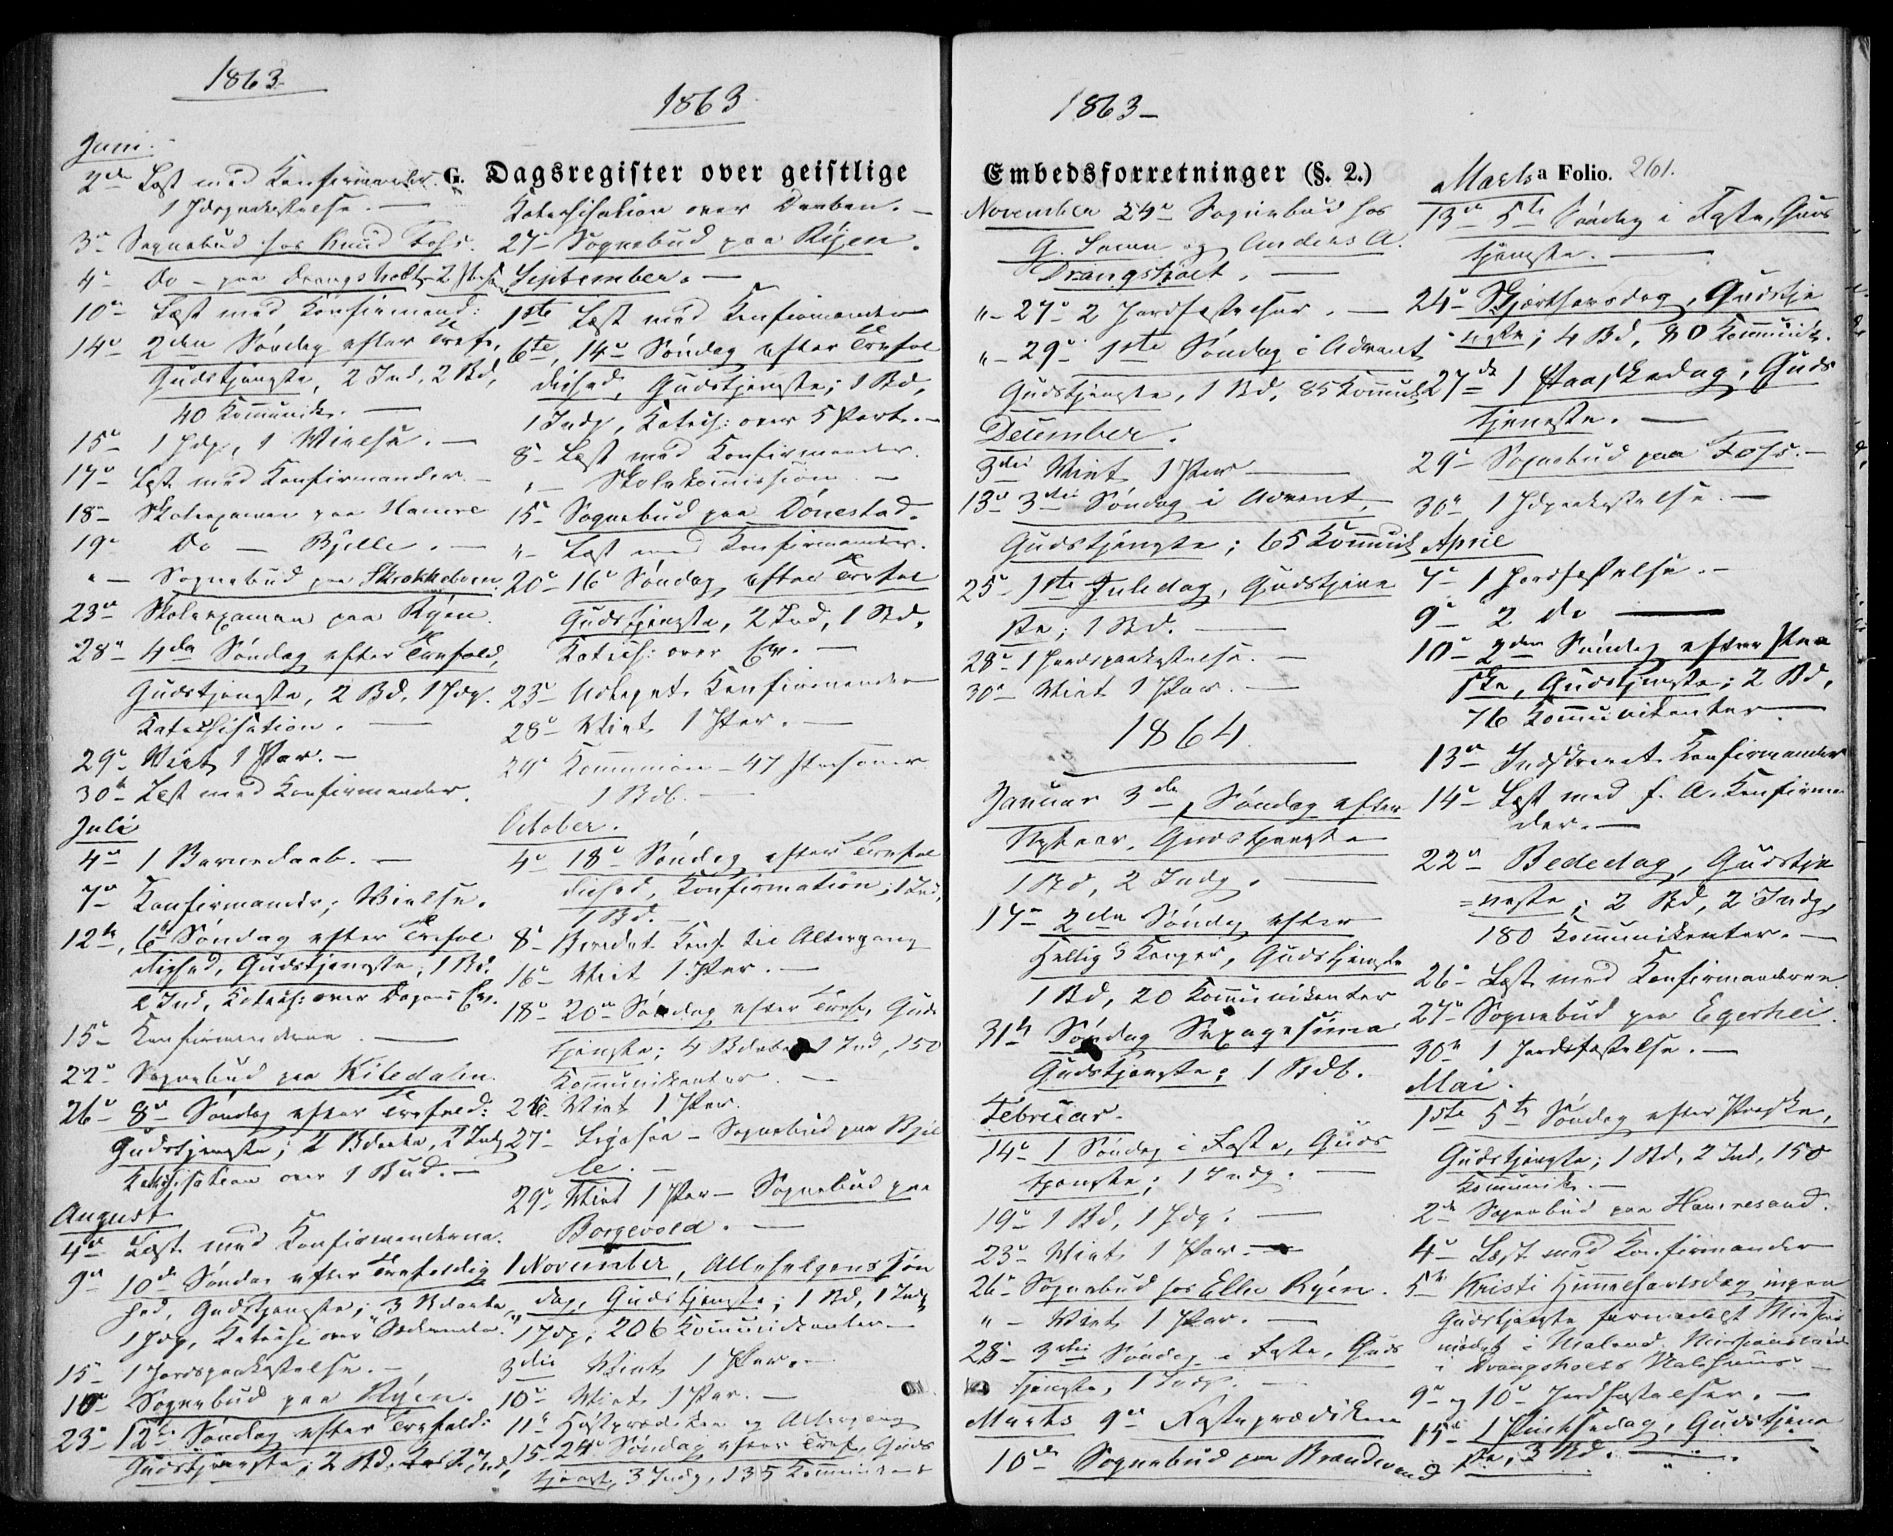 1863.
1863
G. Dagsregister over geistlige
Juni.
2de Læst med Konfirmander.
1 Jdspaakastelse. —
3e Sognebud hos Knud Foss.
4e Do – paa Drangsholt
10e Læst med Konfirmand:
14e 2den Søndag efter Trefo.
Gudstjeneste, 2 Ind, 2 Bd,
40 Kommunik. —
15e 1 Jdp, 1 Vielse. —
17e Læst med Konfirmander. –
18e Skoleexamen paa Hamre
19e Do — Bjelle. —
" – Sognebud paa
23de Skoleexamen paa Ryen.
28e 4de Søndag efter Trefold,
Gudstjeneste, 2 Bd, 1 Jdp.
Katechisation. —
29e Viet 1 Par. –
30te Læst med Konfirmander.
Juli
4de 1 Barnedaab. —
7de Konfirmander; Vielse.
12te, 6te Søndag efter Trefol
dighed, Gudstjeneste, 1 Bd.
2 Ind, Katech: over Dagens Ev.
15e Konfirmanderne —
22e Sognebud paa Kiledalen.
26e 8de Søndag efter Trefold:
Gudstjeneste; 2 Bdøbte, 2 Indg
Katechisation over 1 Bud. —
August
4de Læst med Konfirmanderne.
9de 10de Søndag efter Trefoldig
hed, Gudstjeneste; 3 Bdøbte,
1 Jdp, Katechi over
15e 1 Jordspaakastelse. –
Sognebud paa Ryen.
23e 12te Søndag efter Trefold:
Gudstjeneste; 2 Bd, 2 Ind,
Katechisation over Daaben. —
27e Sognebud paa Ryen.
September. —
1ste Læst med Konfirmander
6te, 14e Søndag efter Trefol
dighed, Gudstjeneste; 1 Bd,
1 Indg, Katech: over 5 Part. —
8e Læst med Konfirmander.
" – Skolekommission —
15e Sognebud paa Dönestad.
" – Læst med Konfirmander.
20e 16e Søndag efter Trefol
Gudstjeneste, 2 Ind, 1 Bd,
Katech: over Ev. —
23e Udtegnet Konfirmander
28e Viet 1 Par. —
29e Kommunion – 47 Personer
1 Bdb. —
October.
4e 18e Søndag efter Trefol
dighed, Konfirmation; 1 Ind,
1 Bd. —
8e Beredet Konf til Altergang
16e Viet 1 Par. —
18e 20de Søndag efter Trefo, Guds
tjeneste; 4 Bdøbte 1 Ind, 150
Kommunikanter. —
Viet 1 Par.
27e Ligsøe – Sognebud paa Bjel
le. —
29e Viet 1 Par – Sognebud paa
Borgevold. —
1 November, Allehelgenssøn
dag, Gudstjeneste; 1 Bd, 1 Indg
1 Jdp, 206 Kommunikanter —
3die Viet 1 Par. —
10e Viet 1 Par. —
11e Høstprædiken og Altergang
15e 24de Søndag efter Tref, Guds
tjenest, 3 Indg, 135 Kommunikant
1863 –
Embedsforretninger (§. 2.)
a Folio. 261.
November 24e Sognebud hos
G. og Anders A.
Drangsholt. —
" – 27e 2 Jordfæstelser. —
" – 29e 1ste Søndag i Advent
Gudstjeneste, 1 Bd, 85 Kommunik
December.
3die Viet 1 Par —
13e 3die Søndag i Advent,
Gudstjeneste; 65 Kommunik
25e 1ste Juledag, Gudstjene
ste; 1 Bd. —
28e 1 Jordspaakastelse. —
30e Viet 1 Par. —
1864.
Januar 3de, Søndag efter
Nytaar, Gudstjeneste
1 Bd, 2 Indg. —
17e 2den Søndag efter
Hellig 3 Konger, Gudstjeneste
1 Bd, 20 Kommunikanter
31te Søndag Sexagesima
Gudstjeneste; 1 Bdb.
Februar.
14e 1 Søndag i Faste, Guds
tjeneste; 1 Indg. —
19e 1 Bd, 1 Jdp. —
23e Viet 1 Par. —
26e Sognebud hos Ellen Ryen.
" – Viet 1 Par. —
28e 3die Søndag i Faste, Guds
tjeneste, 1 Indg. —
Marts 9de Fasteprædiken
10de Sognebud paa Brandsvand
Marts
13e 5te Søndag i Faste, Guds
tjeneste. —
24e Skjærthorsdag, Gudstje
neste; 4 Bd, 80 Kommunik.
27de 1 Paaskedag, Guds
tjeneste. —
29e Sognebud paa Foss. —
30e 1 Jdpaakastelse. —
April
7e 1 Jordfæstelse. —
9e 2 do —
10e 2den Søndag efter Paa
ske, Gudstjeneste; 2 Bd,
76 Kommunikanter —
13de Indskrevet Konfirmander
14e Læst med f. A. Konfirman
der. —
22de Bededag, Gudstje
neste; 2 Bd, 2 Indg,
180 Kommunikanter. —
26e Læst med Konfirmanderne
27e Sognebud paa Egerhei.
30te 1 Jordsfæstelse. —
Mai.
1ste 5te Søndag efter Paaske,
Gudstjeneste; 1 Bd, 2 Ind, 150
Kommunik. —
2de Sognebud paa Hamresand.
4e Læst med Konfirmander
5te Kristi Himmelfartsdag ingen
Gudstjeneste formedelst Missions
mødet i
i Drangsholts
9e og 10e Jordfæstelser. —
15de 1 Pintsedag, Gudstjene
ste, 3 Bd. —